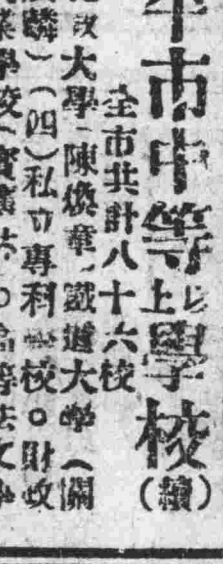 市中等以上學校(續)
全市共計八十六校
大學、陳煥章、鐵道大學(關
麟)(四)私立專科學校。財政
學校